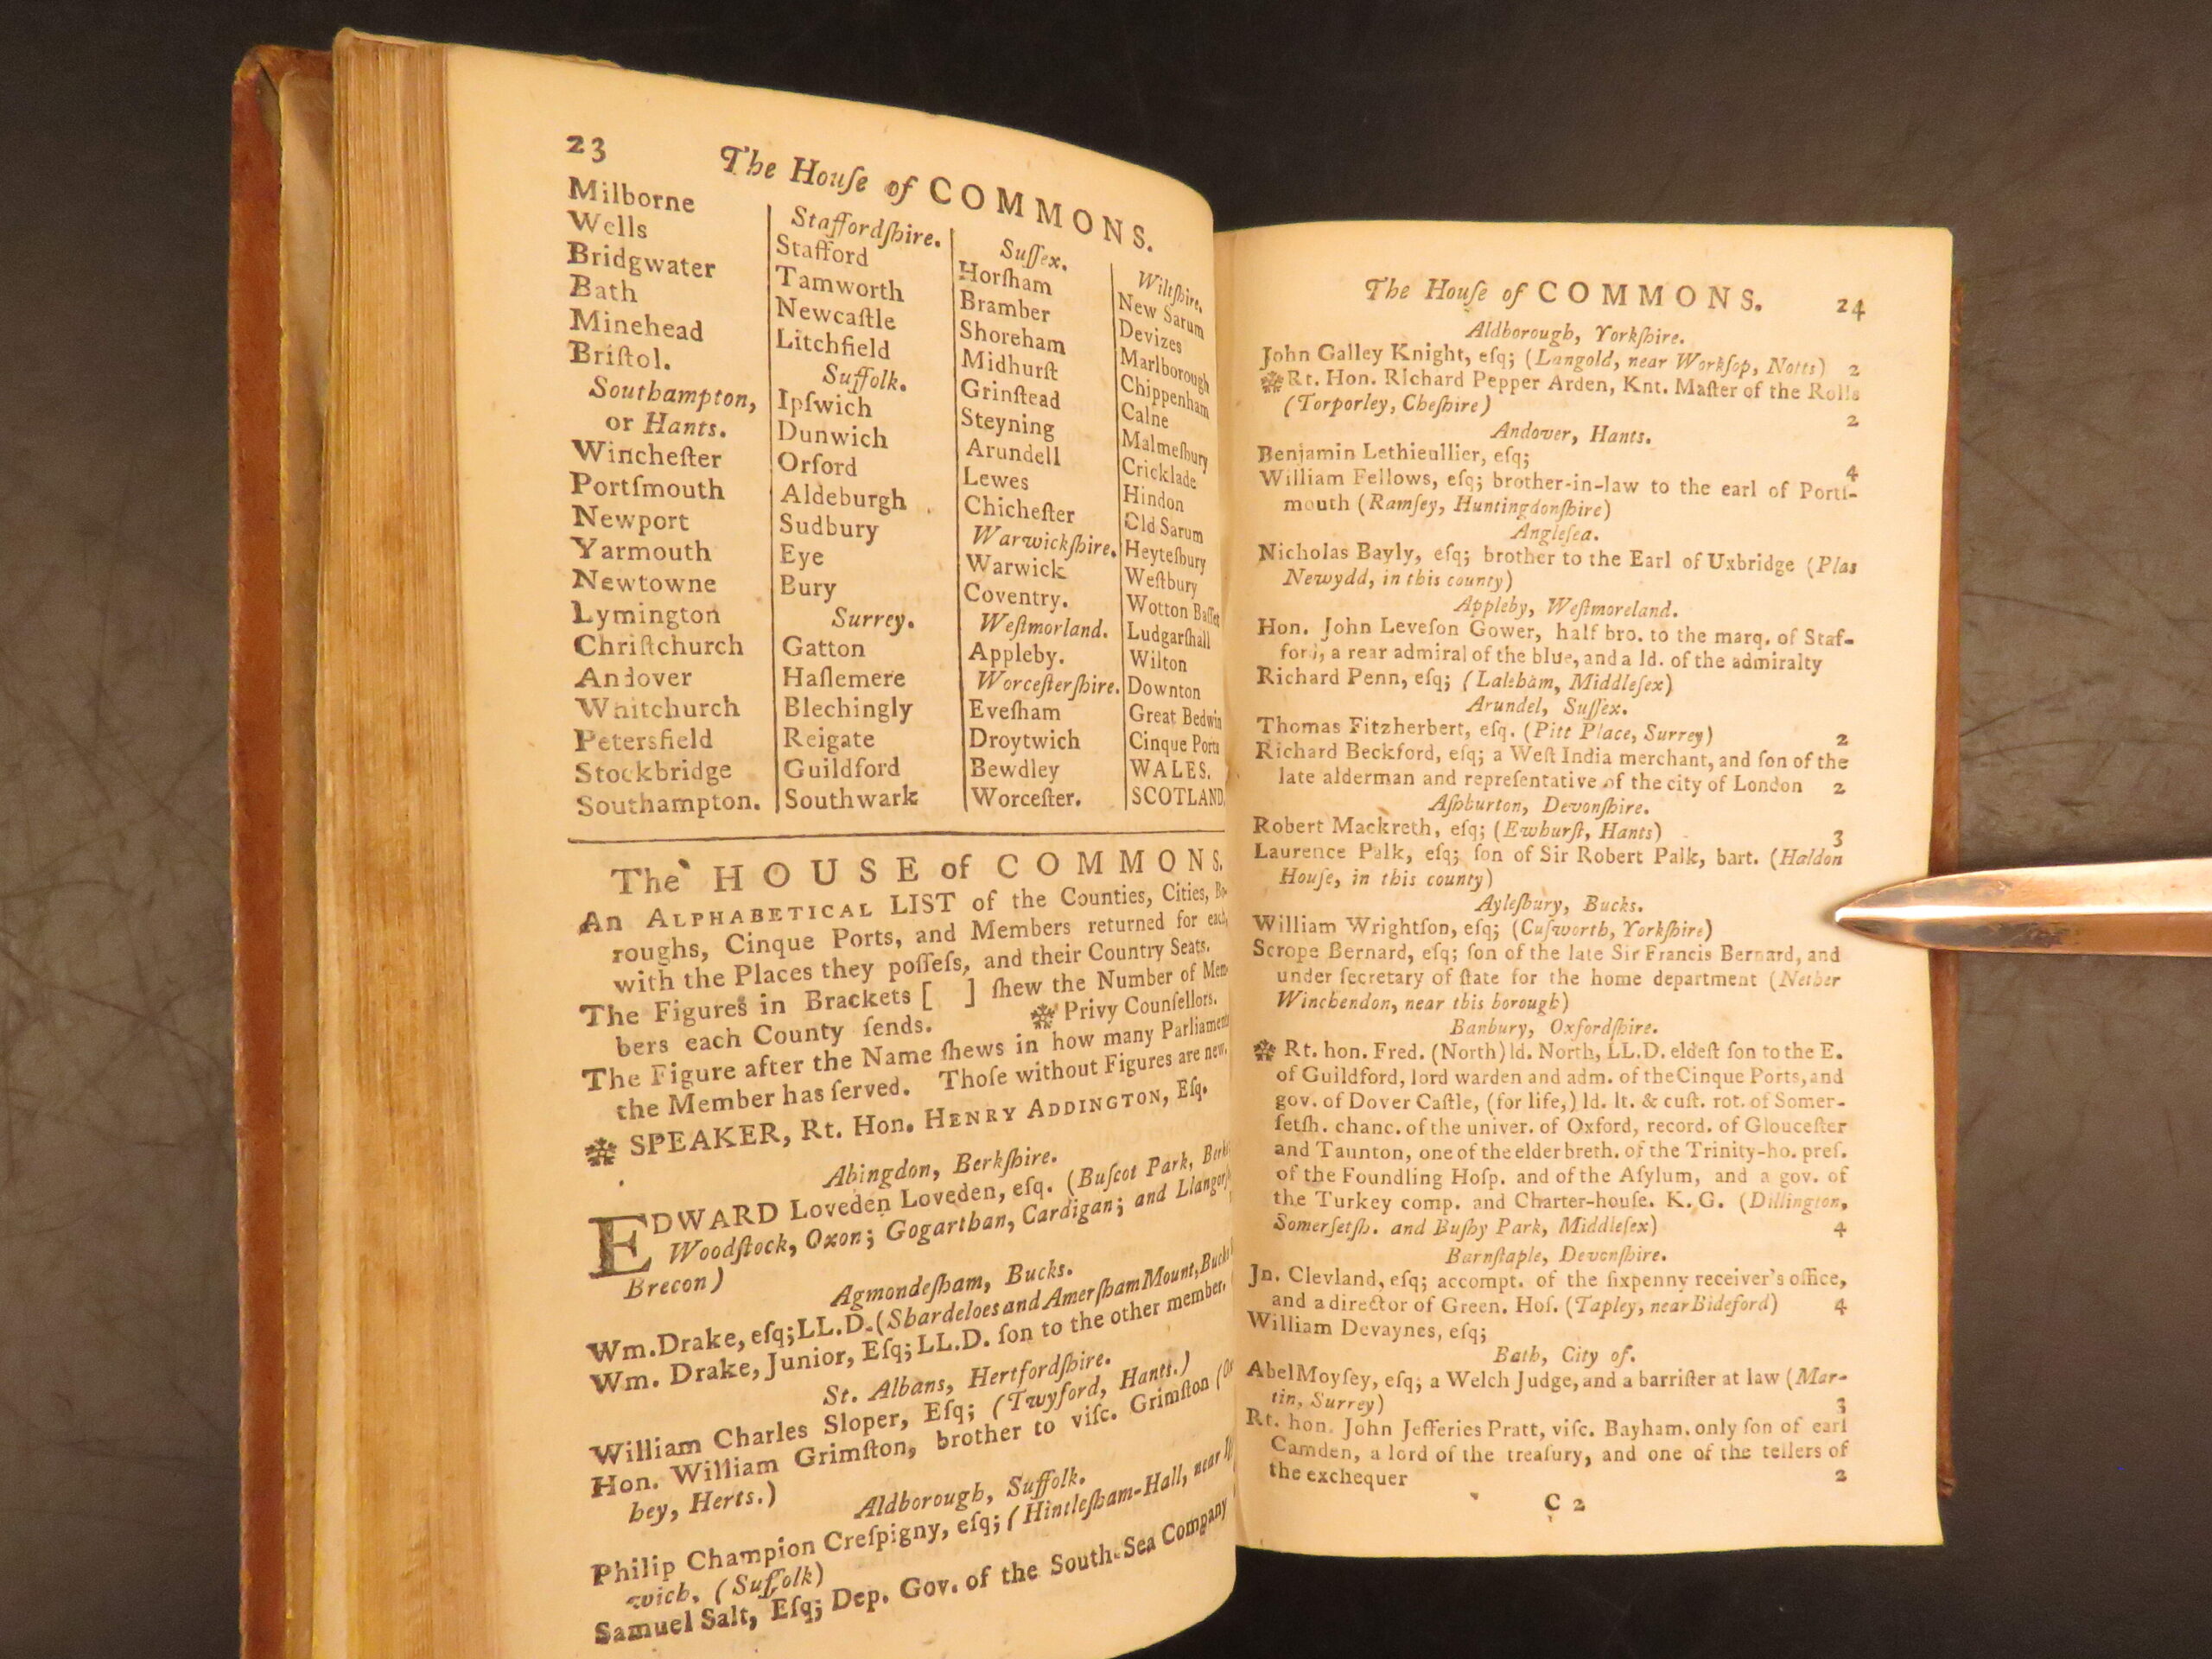 23
The Houſe of COMMONS.
Milborne
Wells
Bridgwater
Bath
Minehead
Briſtol.
Southampton,
or Hants.
Wincheſter
Portſmouth
Newport
Yarmouth
Newtowne
Lymington
Chriſtchurch
Andover
Whitchurch
Petersfield
Stockbridge
Southampton.
Staffordſhire.
Stafford
Tamworth
Newcaſtle
Litchfield
Suffolk.
Ipſwich
Dunwich
Orford
Aldeburgh
Sudbury
Eye
Bury
Surrey.
Gatton
Haſlemere
Blechingly
Reigate
Guildford
Southwark
Suſſex.
Horſham
Bramber
Shoreham
Midhurſt
Grinſtead
Steyning
Arundell
Lewes
Chicheſter
Warwickſhire.
Warwick
Coventry.
Weſtmorland.
Appleby.
Worceſterſhire.
Eveſham
Droytwich
Bewdley
Worceſter.
Wiltſhire.
New Sarum
Devizes
Marlborough
Chippenham
Calne
Malmeſbury
Cricklade
Hindon
Old Sarum
Heyteſbury
Weſtbury
Wotton Baſſet
Ludgarſhall
Wilton
Downton
Great Bedwin
Cinque Ports
WALES.
SCOTLAND.
The HOUSE of COMMONS.
An ALPHABETICAL LIST of the Counties, Cities, Bo-
roughs, Cinque Ports, and Members returned for each,
with the Places they poſſeſs, and their Country Seats.
The Figures in Brackets [ ] ſhew the Number of Mem-
bers each County ſends. Privy Counſellors.
The Figure after the Name ſhews in how many Parliaments
the Member has ſerved. Thoſe without Figures are new.
SPEAKER, Rt. Hon. HENRY ADDINGTON, Eſq.
Abingdon, Berkſhire.
EDWARD Loveden Loveden, eſq. (Buſcot Park,
Woodſtock, Oxon; Gogarthan, Cardigan; and
Brecon)
Agmondeſham, Bucks.
Wm. Drake, eſq; LL.D. (Shardeloes and Amerſham Mount, Bucks
Wm. Drake, Junior, Eſq; LL.D. ſon to the other member.
St. Albans, Hertfordſhire.
William Charles Sloper, Eſq; (Twyford, Hants.)
Hon. William Grimſton, brother to viſc. Grimſton
bey, Herts.)
Aldborough, Suffolk.
Philip Champion Creſpigny, eſq; (Hintleſham-Hall, near
wich, (Suffolk)
Samuel Salt, Eſq; Dep. Gov. of the South-Sea Company
The Houſe of COMMONS. 24
Aldborough, Yorkſhire.
John Galley Knight, eſq; (Langold, near Workſop, Notts) 2
Rt. Hon. Richard Pepper Arden, Knt. Maſter of the Rolls
(Torporley, Cheſhire) 2
Andover, Hants.
Benjamin Lethieullier, eſq; 4
William Fellows, eſq; brother-in-law to the earl of Portſ-
mouth (Ramſey, Huntingdonſhire)
Angleſea.
Nicholas Bayly, eſq; brother to the Earl of Uxbridge (Plas
Newydd, in this county)
Appleby, Weſtmoreland.
Hon. John Leveſon Gower, half bro. to the marq. of Staf-
ford, a rear admiral of the blue, and a ld. of the admiralty
Richard Penn, eſq; (Laleham, Middleſex)
Arundel, Suſſex.
Thomas Fitzherbert, eſq. (Pitt Place, Surrey) 2
Richard Beckford, eſq; a Weſt India merchant, and ſon of the
late alderman and repreſentative of the city of London 2
Aſhburton, Devonſhire.
Robert Mackreth, eſq; (Ewhurſt, Hants) 3
Laurence Palk, eſq; ſon of Sir Robert Palk, bart. (Haldon
Houſe, in this county)
Ayleſbury, Bucks.
William Wrightſon, eſq; (Cuſworth, Yorkſhire)
Scrope Bernard, eſq; ſon of the late Sir Francis Bernard, and
under ſecretary of ſtate for the home department (Nether
Winchendon, near this borough)
Banbury, Oxfordſhire.
Rt. hon. Fred. (North) ld. North, LL.D. eldeſt ſon to the E.
of Guildford, lord warden and adm. of the Cinque Ports, and
gov. of Dover Caſtle, (for life,) ld. lt. & cuſt. rot. of Somer-
ſetſh. chanc. of the univer. of Oxford, record. of Glouceſter
and Taunton, one of the elder breth. of the Trinity-ho. preſ.
of the Foundling Hoſp. and of the Aſylum, and a gov. of
the Turkey comp. and Charter-houſe. K. G. (Dillington,
Somerſetſh. and Buſhy Park, Middleſex) 4
Barnſtaple, Devonſhire.
Jn. Clevland, eſq; accompt. of the ſixpenny receiver's office,
and a director of Green. Hoſ. (Tapley, near Bideford) 4
William Devaynes, eſq;
Bath, City of.
Abel Moyſey, eſq; a Welch Judge, and a barriſter at law (Mar-
tin, Surrey) 3
Rt. hon. John Jefferies Pratt, viſc. Bayham, only ſon of earl
Camden, a lord of the treaſury, and one of the tellers of
the exchequer 2
C 2